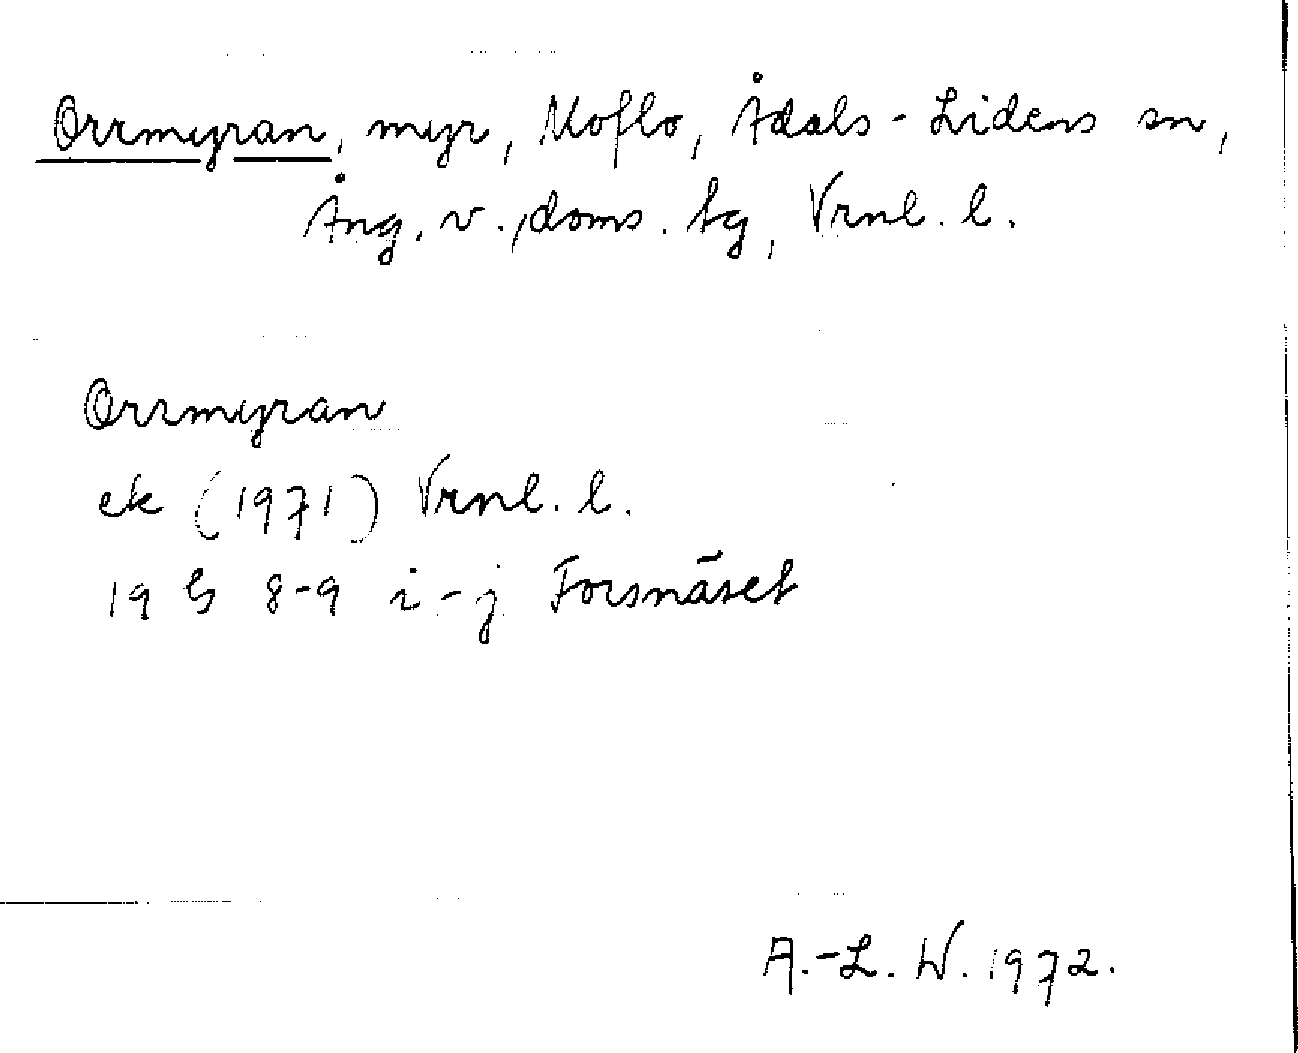 Orrmyran, myr, Moflo, Ådals-Lidens sn,
Ång. v., doms. tg, Vrnl. l.
Orrmyran
ek (1971) Vrnl. l.
19 G 8-9 i-j Forsnäset
A.-L. W. 1972.